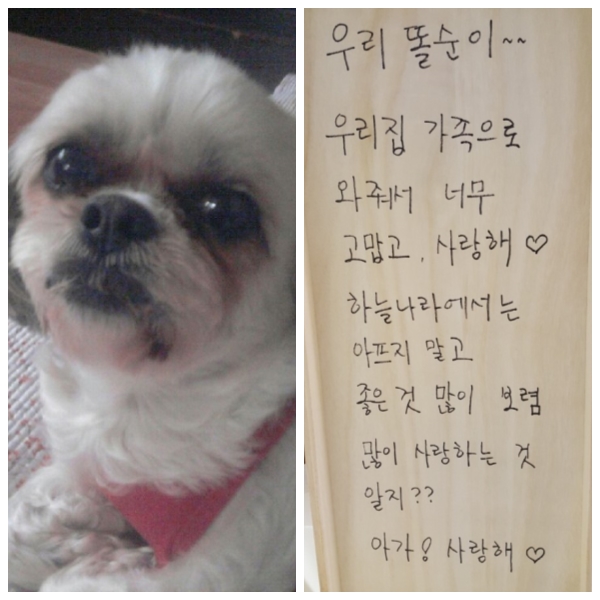 우리 똘순이~~
우리집 가족으로
와줘서 너무
고맙고, 사랑해♡
하늘나라에서는
아프지 말고
좋은것 많이 보렴
많이 사랑하는 것
알지??
아가! 사랑해♡